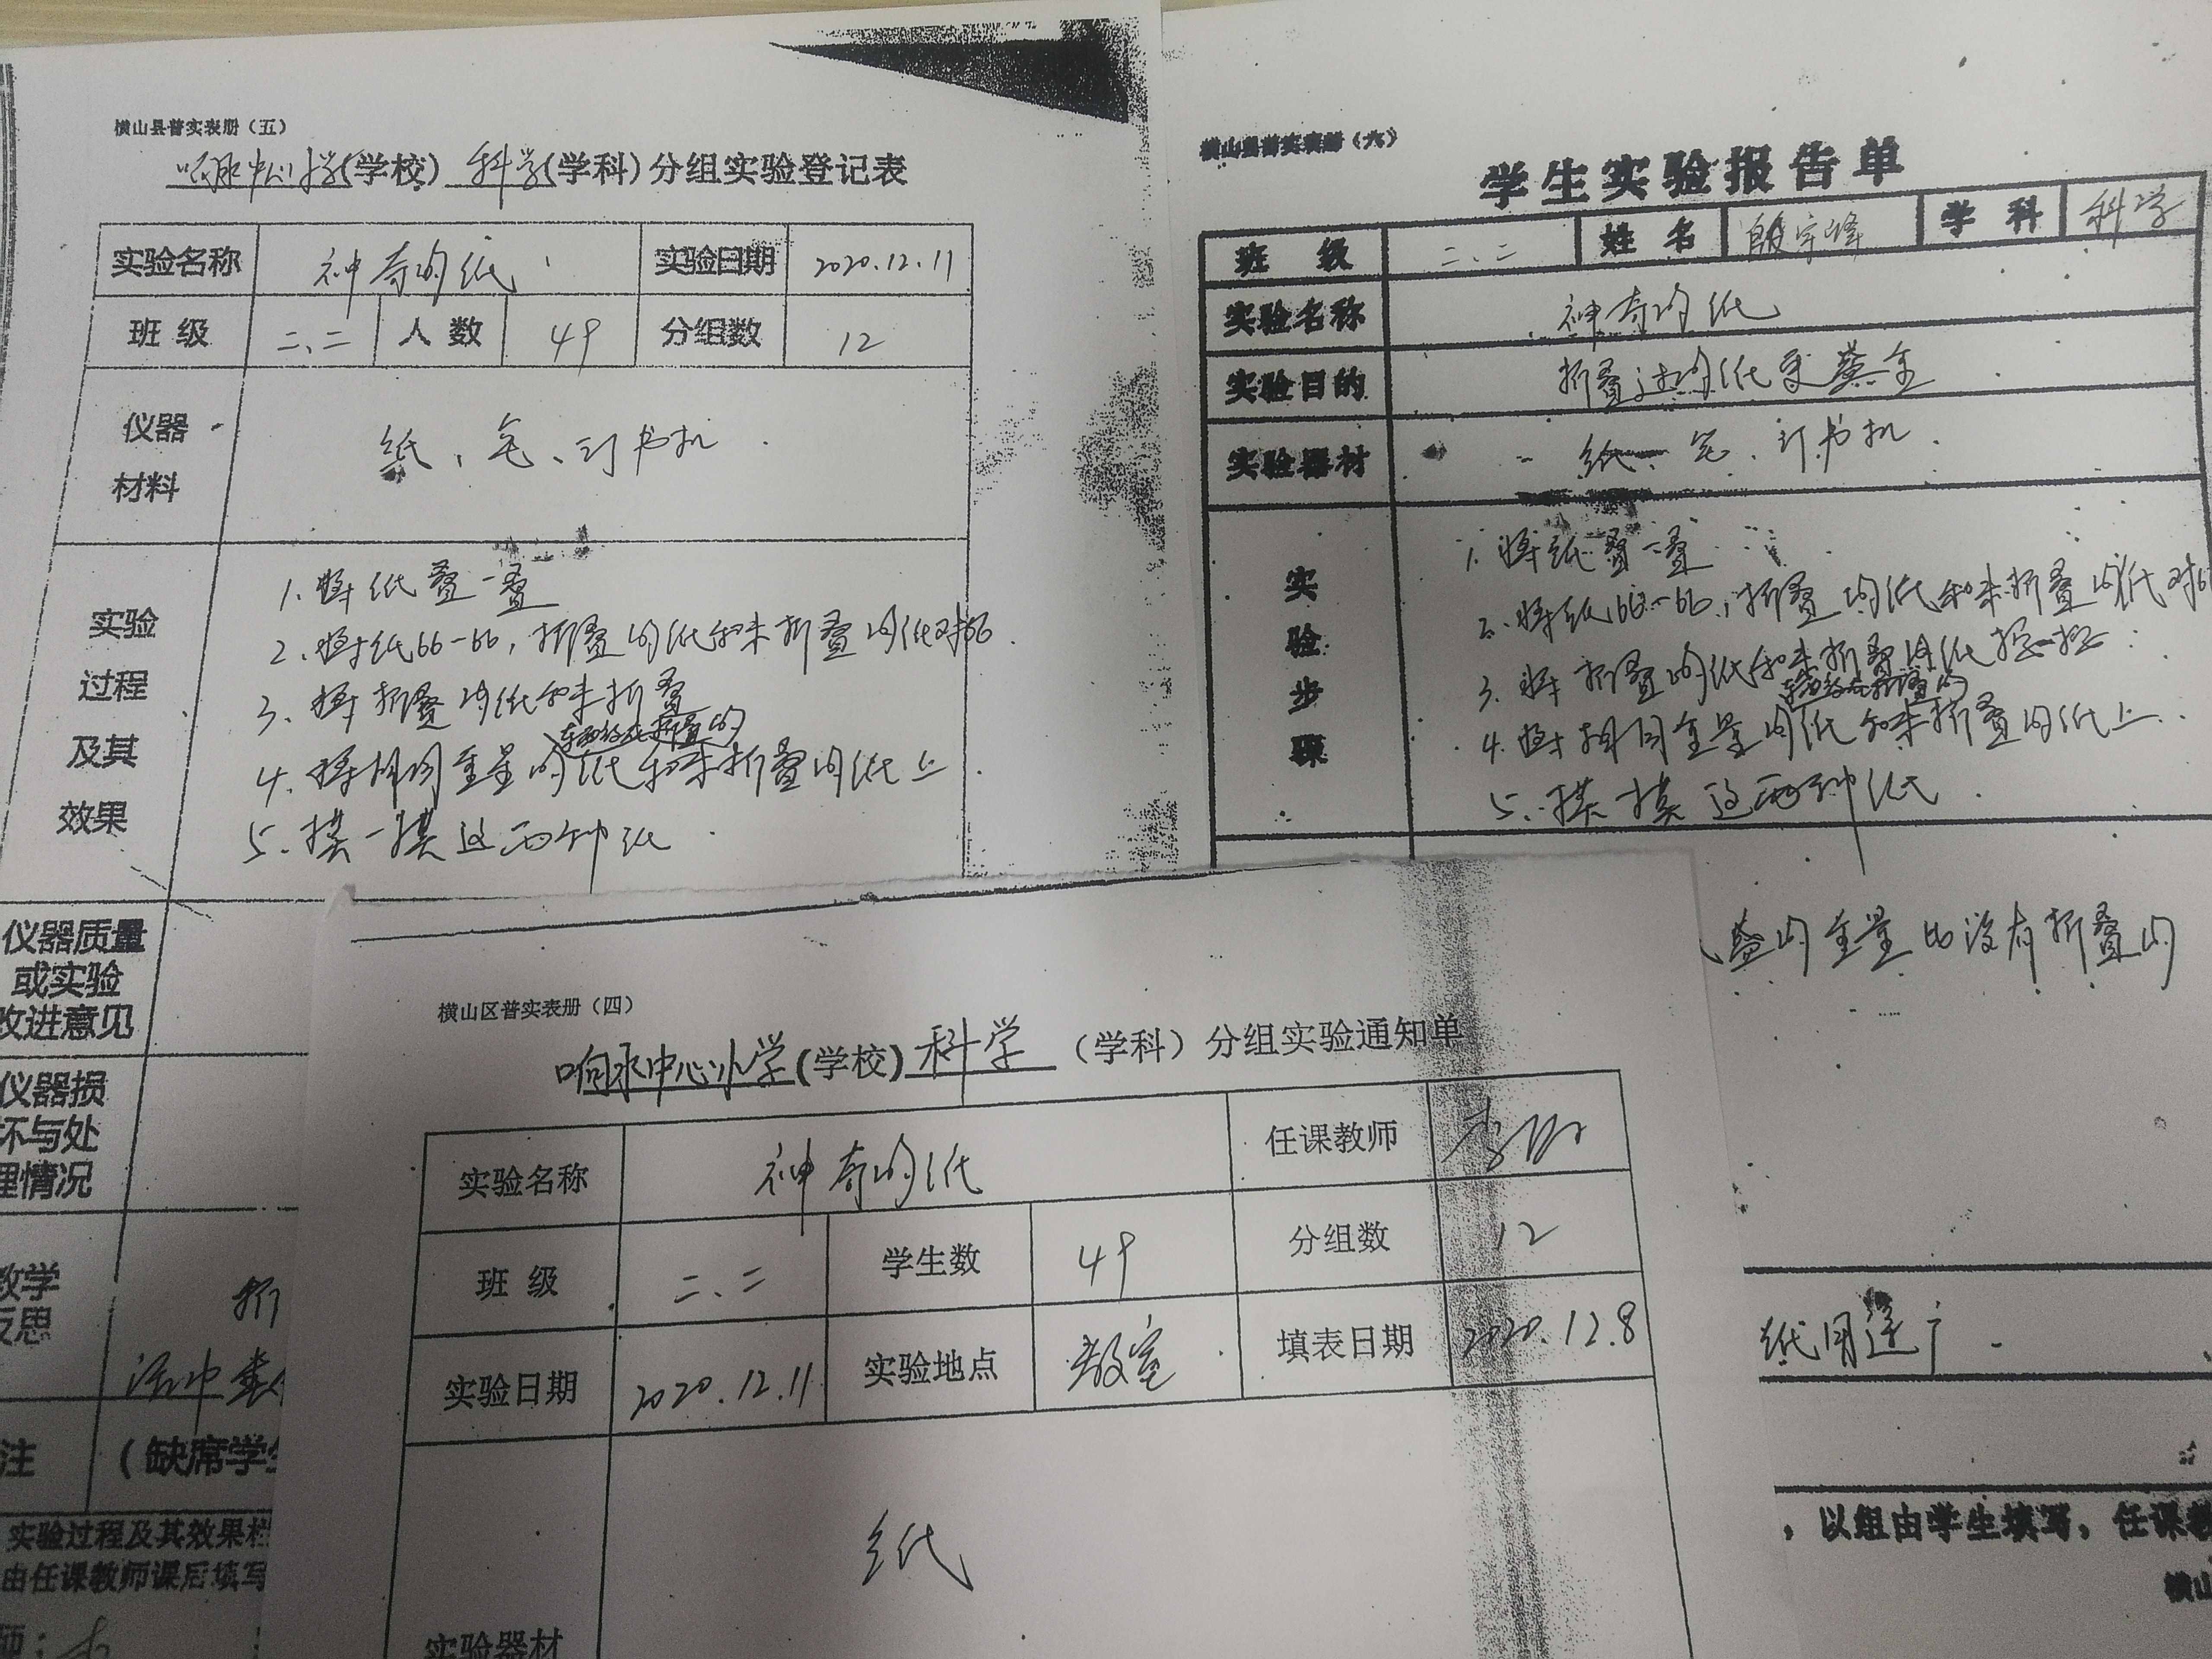 横山县普实表册（五）
响水中心小学(学校) 科学(学科)分组实验登记表
实验名称 神奇的纸 实验日期 2020.12.11
班 级 二、二 人 数 49 分组数 12
仪器
材料
纸、笔、订书机
实验
过程
及其
效果
1. 将纸叠一叠
2. 将纸比一比，折叠的纸和未折叠的纸对比
3. 将折叠的纸和未折叠
东西放在折叠的
4. 将相同重量的纸和未折叠的纸上
5. 摸一摸这两种纸
仪器质量
或实验
改进意见
仪器损
坏与处
理情况
教学
反思
折
注 （缺席学生
实验过程及其效果栏
由任课教师课后填写
横山县普实表册（六）
学生实验报告单
班 级 二、二 姓 名 殷宇峰 学 科 科学
实验名称 神奇的纸
实验目的 折叠过的纸更
实验器材 纸、笔、订书机
实
验
步
骤
1. 将纸叠一叠
2. 将纸比一比，折叠的纸和未折叠的纸对比
3. 将折叠的纸和未折叠的纸
东西放在折叠的
4. 将相同重量的纸和未折叠的纸上
5. 摸一摸这两种纸
的重量比没有折叠的
纸用途广
，以组由学生填写，任课教
横山
横山区普实表册（四）
响水中心小学(学校) 科学（学科）分组实验通知单
实验名称 神奇的纸 任课教师
班 级 二、二 学生数 49 分组数 12
实验日期 2020.12.11 实验地点 教室 填表日期 2020.12.8
纸
实验器材